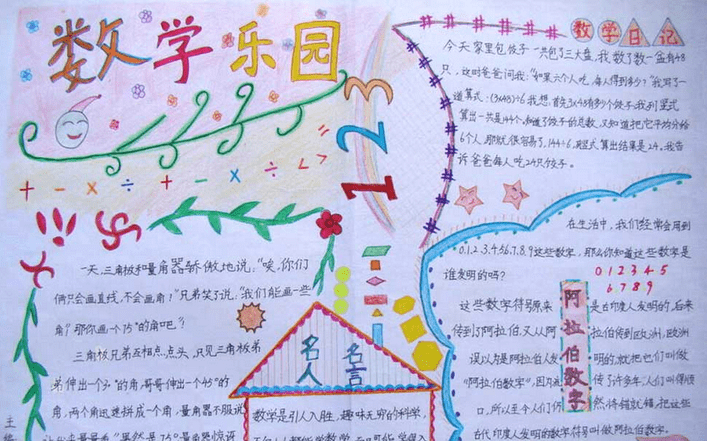 数学乐园
1 2 3
+ - × ÷ + - × ÷ < >
数学日记
今天家里包饺子一共包了三大盘,我数了数一盆有48
只,这时爸爸问我:"如果六个人吃,每人得到多少?"我写了一
道算式:(3×48)÷6我想:首先3×48有多少个饺子,我列竖式
算出一共是144个,知道了饺子的总数,又知道把它平均分给
6个人,那就很容易了,144÷6,竖式算出结果是24。我告
诉爸爸每人吃24只饺子。
一天,三角板和量角器骄傲地说:"唉,你们
俩只会画直线,不会画角!"兄弟笑了说:"我们能画一些
角?那你画一个75°的角吧?"
三角板兄弟互相点点头,只见三角板弟
弟伸出一个30°的角,哥哥伸出一个45°的
角,两个角迅速拼成一个角,量角器不服说
名人名言
数学是引人入胜,趣味无穷的科学,
在生活中,我们经常会用到
0.1.2.3.4.5.6.7.8.9这些数字,那么你知道这些数字是
谁发明的吗?
0 1 2 3 4 5
6 7 8 9
阿拉伯数字
这些数字符号原来是古印度人发明的,后来
传到了阿拉伯,又从阿拉伯传到欧洲,欧洲
误以为是阿拉伯人发明的,就把它们叫做
"阿拉伯数字",因为流传了许多年人们叫得顺
口,所以至今人们仍然将错就错,把这些
古代印度人发明的数字符号叫做阿拉伯数字。